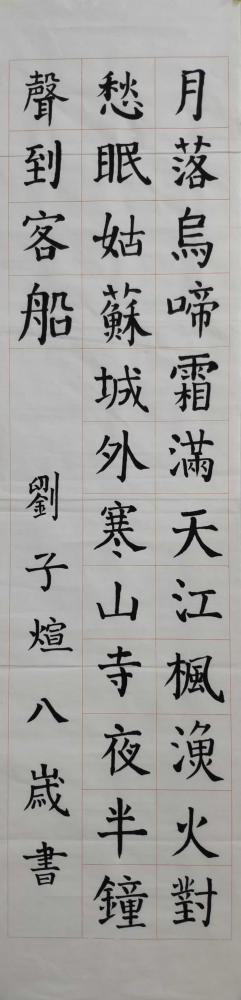 月落烏啼霜滿天江楓漁火對
愁眠姑蘇城外寒山寺夜半鐘
聲到客船
劉子煊八歲書